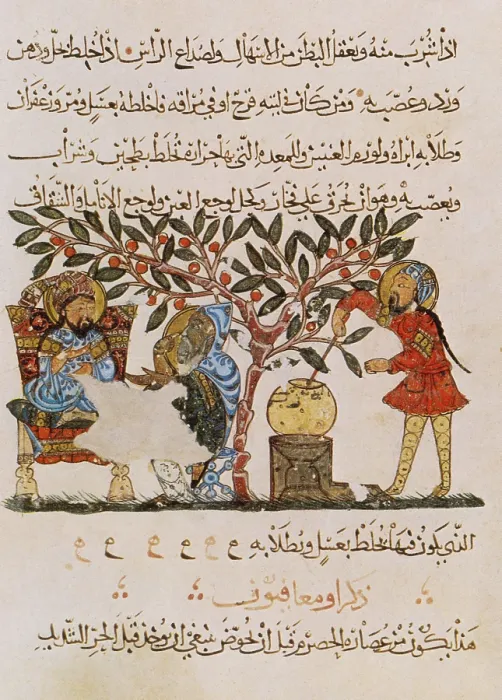 اذا شرب منه ويعقل البطن من الاسهال ولصداع الراس اذا خلط بخل ودهن
ورد وعصب به ومن كان في لبته قرح او في مراقه فاخلطه بعسل ومر وزعفران
وطلا به ابراه ولورم العينين وللمعده التي بها حراره تخلط بطحين وشراب
ويعصب به وهو ان يحرق على فخار يحد لوجع العين ولوجع الانامل والشقاق
الذي يكون فيها يخلط بعسل ويطلا به
ذكر اومفاقيون
هذا يكون من عصارة الحصرم قبل ان يحوض ينبغي ان يوخذ قبل الحر الشديد